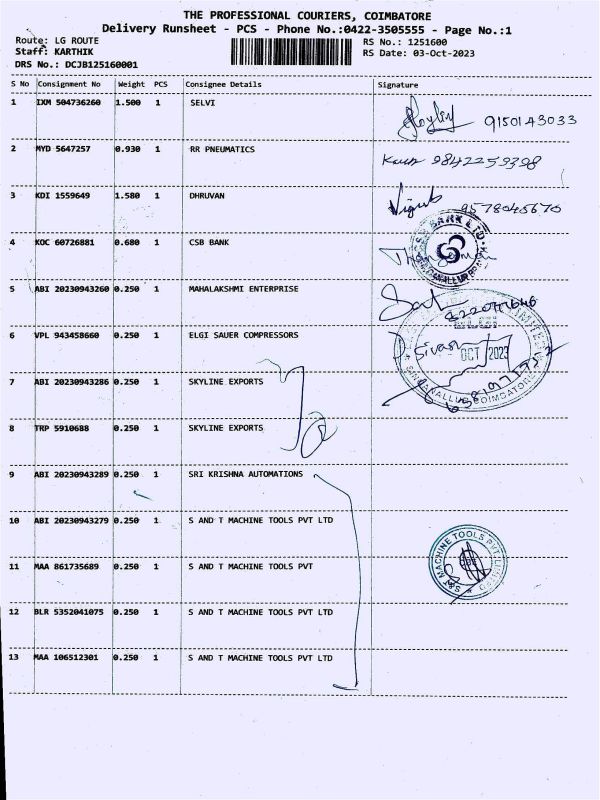 THE PROFESSIONAL COURIERS, COIMBATORE
Delivery Runsheet - PCS - Phone No.:0422-3505555 - Page No.:1
Route: LG ROUTE RS No.: 1251600
Staff: KARTHIK RS Date: 03-Oct-2023
DRS No.: DCJB125160001
S No Consignment No Weight PCS Consignee Details Signature
1 IXM 504736260 1.500 1 SELVI
9150143033
2 MYD 5647257 0.930 1 RR PNEUMATICS
9842259398
3 KDI 1559649 1.580 1 DHRUVAN
9578045670
4 KOC 60726881 0.680 1 CSB BANK
BANK LTD
5 ABI 20230943260 0.250 1 MAHALAKSHMI ENTERPRISE
6 VPL 943458660 0.250 1 ELGI SAUER COMPRESSORS
ELGI
OCT 2023
SINGANALLUR COIMBATORE
7 ABI 20230943286 0.250 1 SKYLINE EXPORTS
8 TRP 5910688 0.250 1 SKYLINE EXPORTS
9 ABI 20230943289 0.250 1 SRI KRISHNA AUTOMATIONS
10 ABI 20230943279 0.250 1 S AND T MACHINE TOOLS PVT LTD
11 MAA 861735689 0.250 1 S AND T MACHINE TOOLS PVT
S&T MACHINE TOOLS PVT. LIMITED
12 BLR 5352041075 0.250 1 S AND T MACHINE TOOLS PVT LTD
13 MAA 106512301 0.250 1 S AND T MACHINE TOOLS PVT LTD